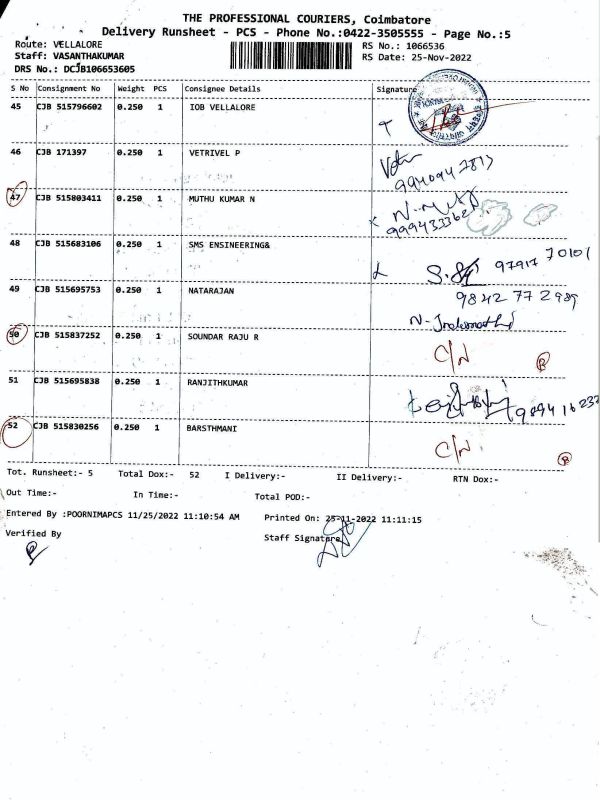 THE PROFESSIONAL COURIERS, Coimbatore
Delivery Runsheet - PCS - Phone No.:0422-3505555 - Page No.:5
Route: VELLALORE RS No.: 1066536
Staff: VASANTHAKUMAR RS Date: 25-Nov-2022
DRS No.: DCJB106653605
S No Consignment No Weight PCS Consignee Details Signature
45 CJB 515796602 0.250 1 IOB VELLALORE
46 CJB 171397 0.250 1 VETRIVEL P
47 CJB 515803411 0.250 1 MUTHU KUMAR N
48 CJB 515683106 0.250 1 SMS ENSINEERING& 97917 70101
49 CJB 515695753 0.250 1 NATARAJAN 9842 77 2989
50 CJB 515837252 0.250 1 SOUNDAR RAJU R C/N
51 CJB 515695838 0.250 1 RANJITHKUMAR
52 CJB 515830256 0.250 1 BARSTHMANI C/N
Tot. Runsheet:- 5 Total Dox:- 52 I Delivery:- II Delivery:- RTN Dox:-
Out Time:- In Time:- Total POD:-
Entered By :POORNIMAPCS 11/25/2022 11:10:54 AM Printed On: 25-11-2022 11:11:15
Verified By Staff Signature